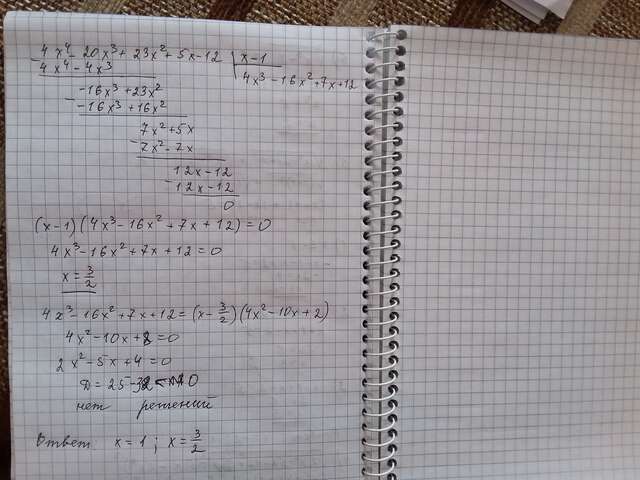 4x⁴-20x³+23x²+5x-12 | x-1
4x⁴-4x³ | 4x³-16x²+7x+12
-16x³+23x²
-16x³+16x²
7x²+5x
7x²-7x
12x-12
12x-12
0
(x-1)(4x³-16x²+7x+12)=0
4x³-16x²+7x+12=0
x=3/2
4x³-16x²+7x+12=(x-3/2)(4x²-10x+2)
4x²-10x+8=0
2x²-5x+4=0
D=25-32<0
нет решений
Ответ x=1; x=3/2